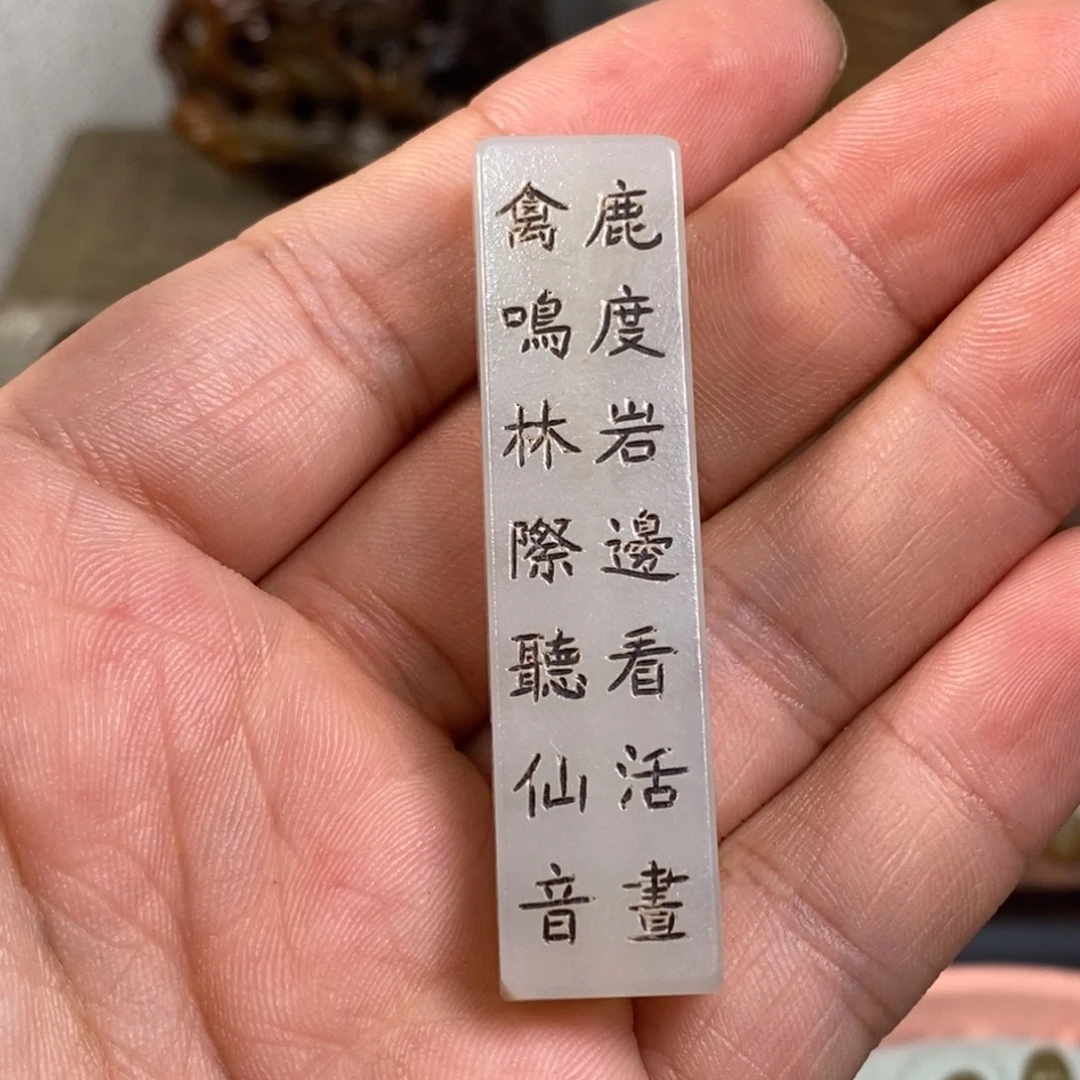 鹿度岩邊看活晝
禽鳴林際聽仙音